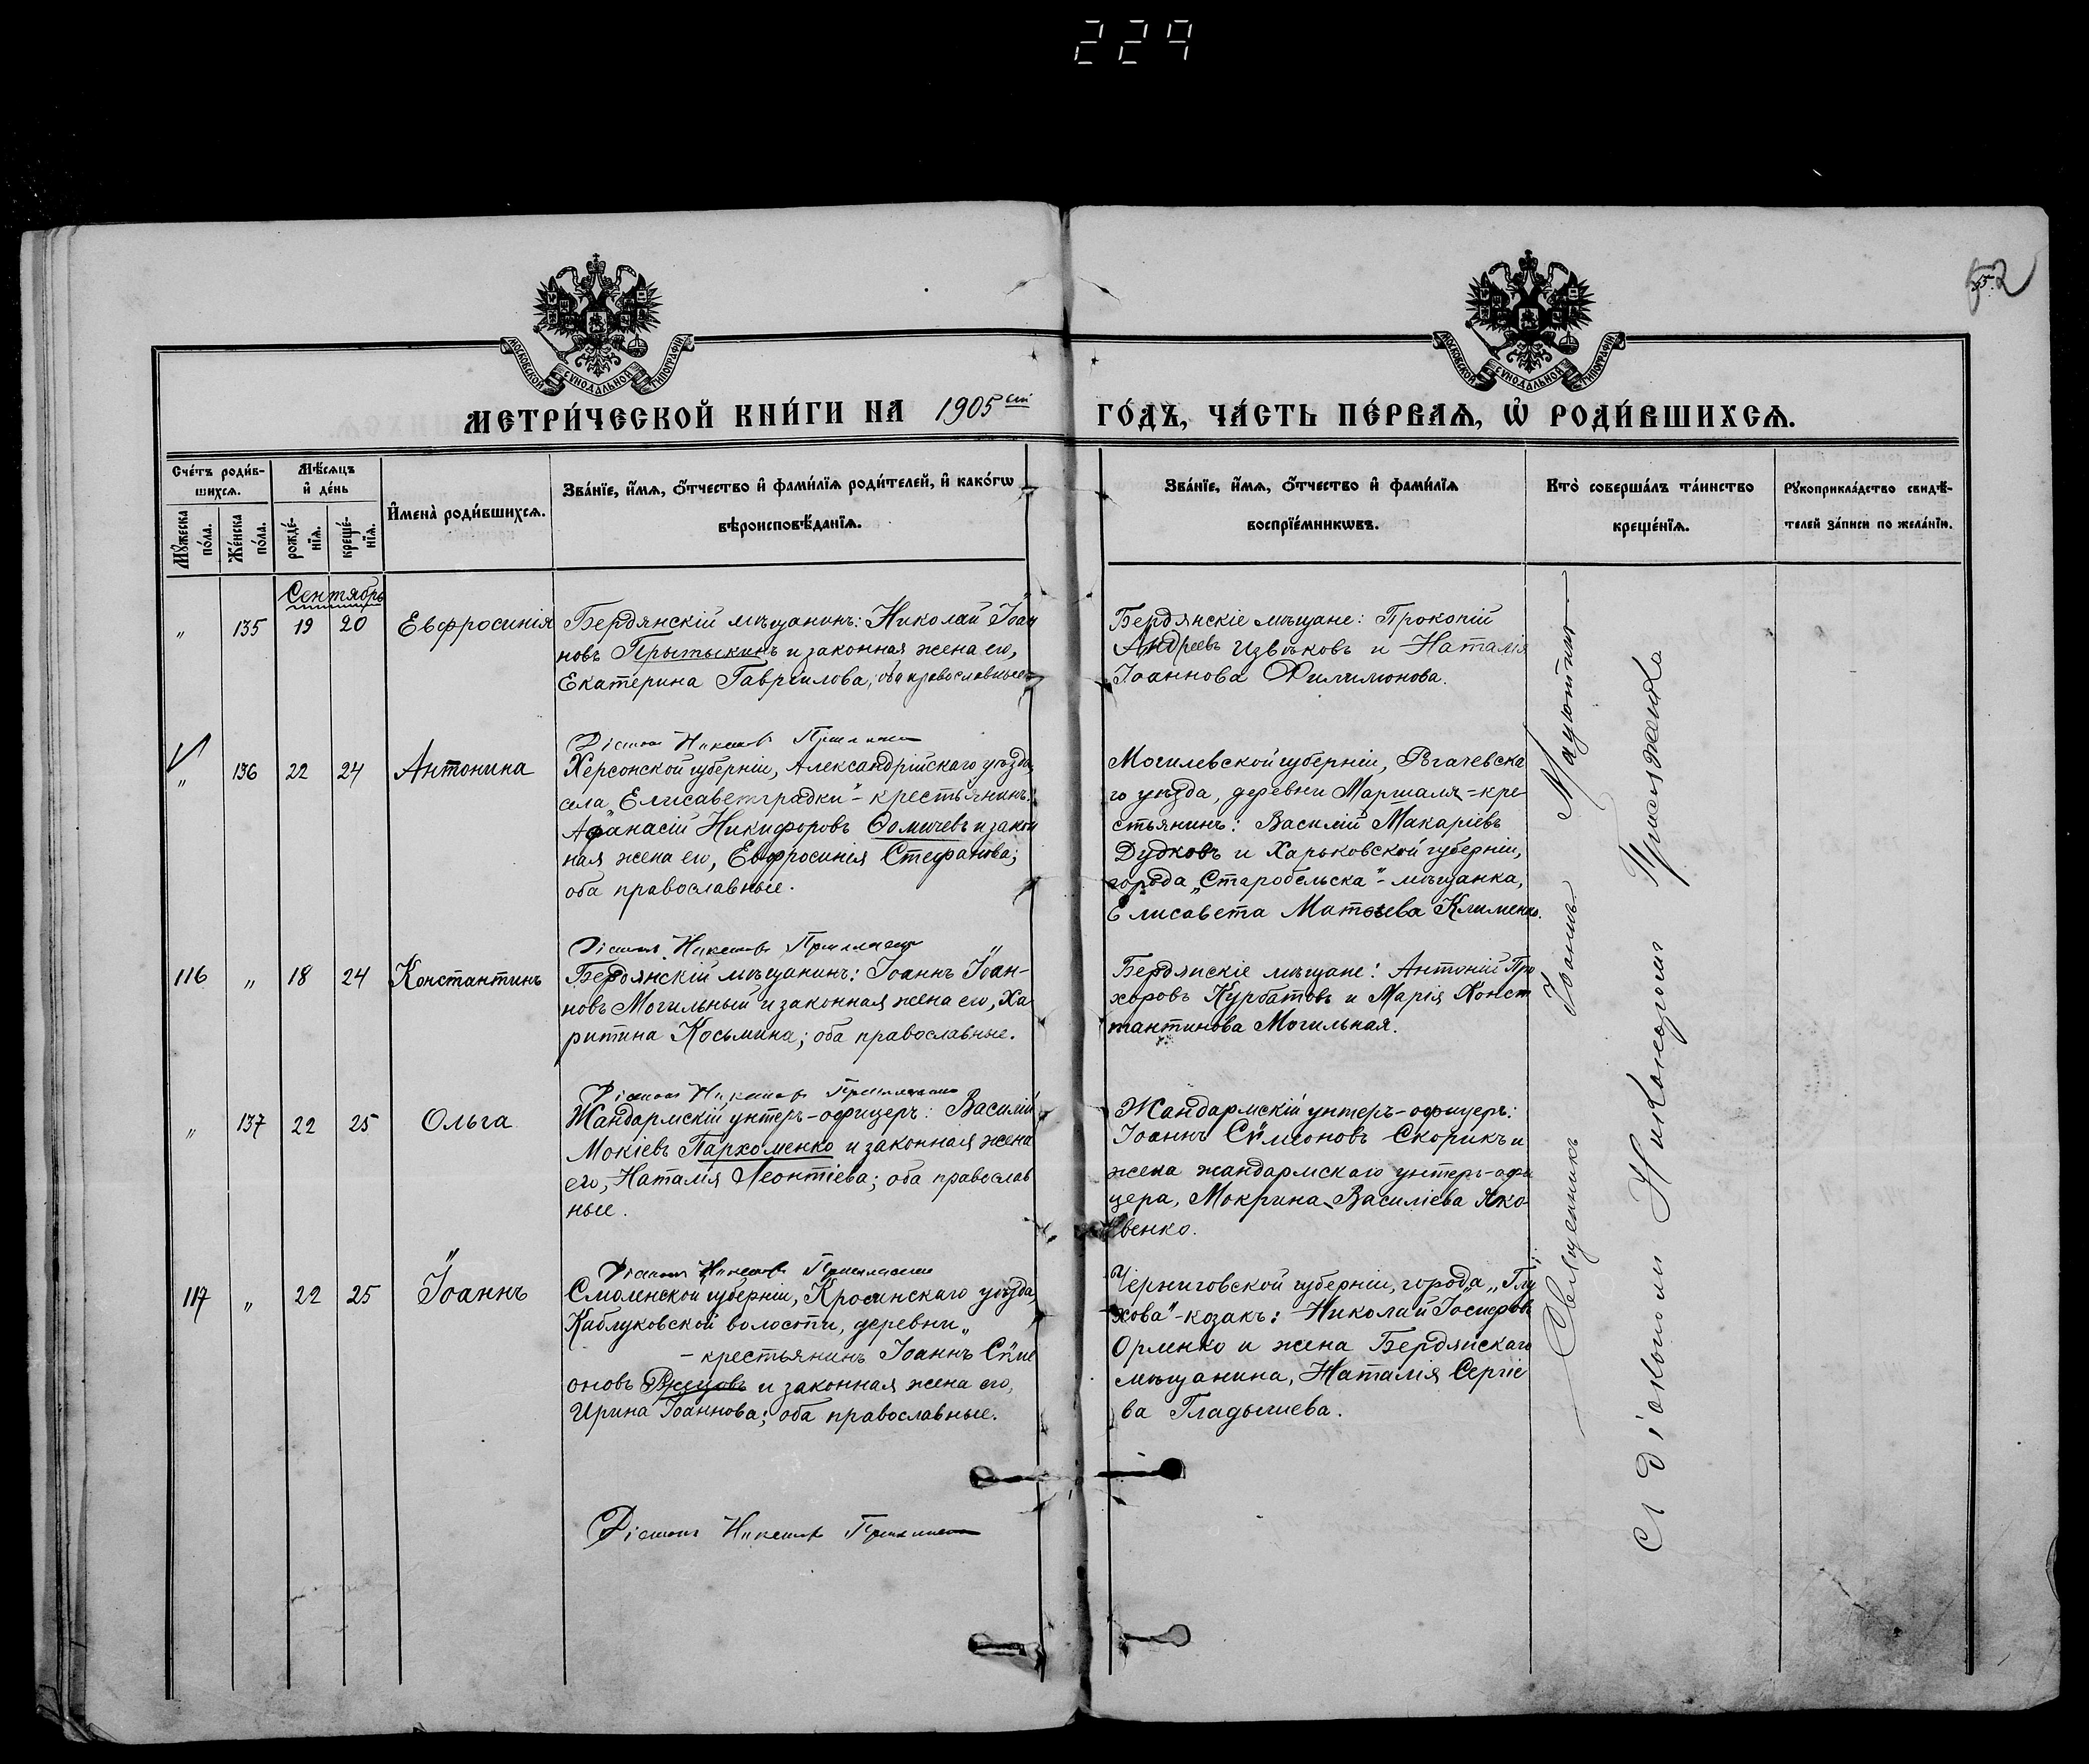 229
52
МОСКОВСКОЙ СѴНОДАЛЬНОЙ ТИПОГРАФІИ
МОСКОВСКОЙ СѴНОДАЛЬНОЙ ТИПОГРАФІИ
МЕТРИ́ЧЕСКОЙ КНИ́ГИ НА 1905 ГО́ДЪ, ЧА́СТЬ ПЕ́РВАѦ, Ѡ҆ РОДИ́ВШИХСѦ.
Сче́тъ роди́в-
шихсѧ.
Мꙋ́жеска
по́ла.
Же́нска
по́ла.
Мѣ́сѧцъ
и҆ де́нь
рожде́-
нїѧ.
креще́-
нїѧ.
И҆мена̀ роди́вшихсѧ.
Зва́нїе, и҆́мѧ, ѻ҆́тчество и҆ фами́лїѧ роди́телей, и҆ како́гѡ
вѣроисповѣ́данїѧ.
Зва́нїе, и҆́мѧ, ѻ҆́тчество и҆ фами́лїѧ
воспрїе́мникѡвъ.
Кто̀ соверша́лъ та́инство
креще́нїѧ.
Рꙋкоприкла́дство свидѣ́-
телей за́писи по жела́нїю.
Сентябрь
„ 135 19 20 Евфросинія
Бердянскій мѣщанинъ: Николай Іоан
новъ Прытыкинъ и законная жена его,
Екатерина Гавріилова; оба православные
Бердянскіе мѣщане: Прокопій
Андреевъ Извѣковъ и Наталія
Іоаннова Филимонова.
„ 136 22 24 Антонина
Херсонской губерніи, Александрійскаго уѣзда,
села „Елисаветградки" - крестьянинъ:
Афанасій Никифоровъ Ѳомичевъ и закон
ная жена его, Евфросинія Стефанова;
оба православные.
Могилевской губерніи, Рогачевска
го уѣзда, деревни Маршаля - кре
стьянинъ: Василій Макаріевъ
Дудковъ и Харьковской губерніи,
города „Старобельска" - мѣщанка,
Елисавета Матѳѣева Клименко.
116 „ 18 24 Константинъ
Бердянскій мѣщанинъ: Іоаннъ Іоан-
новъ Могильный и законная жена его, Ха
ритина Косьмина; оба православные.
Бердянскіе мѣщане: Антоній Про
хоровъ Курбатовъ и Марія Конст
тантинова Могильная.
„ 137 22 25 Ольга
Жандармскій унтеръ-офицеръ: Василій
Мокіевъ Пархоменко и законная жена
его, Наталія Леонтіева; оба православ
ные.
Жандармскій унтеръ-офицеръ:
Іоаннъ Сѵмеоновъ Скорикъ и
жена жандармскаго унтеръ-офи
цера, Мокрина Василіева Яко
венко.
117 „ 22 25 Іоаннъ
Смоленской губерніи, Кросинскаго уѣзда,
Каблуковской волости, деревни „
- крестьянинъ Іоаннъ Сѵме
оновъ и законная жена его,
Ирина Іоаннова; оба православные.
Черниговской губерніи, города „Глу
хова" - козакъ: Николай Іосифовъ
Орленко и жена Бердянскаго
мѣщанина, Наталія Сергіе
ва Гладышева.
Священникъ Іоаннъ
Съ діакономъ Никонором